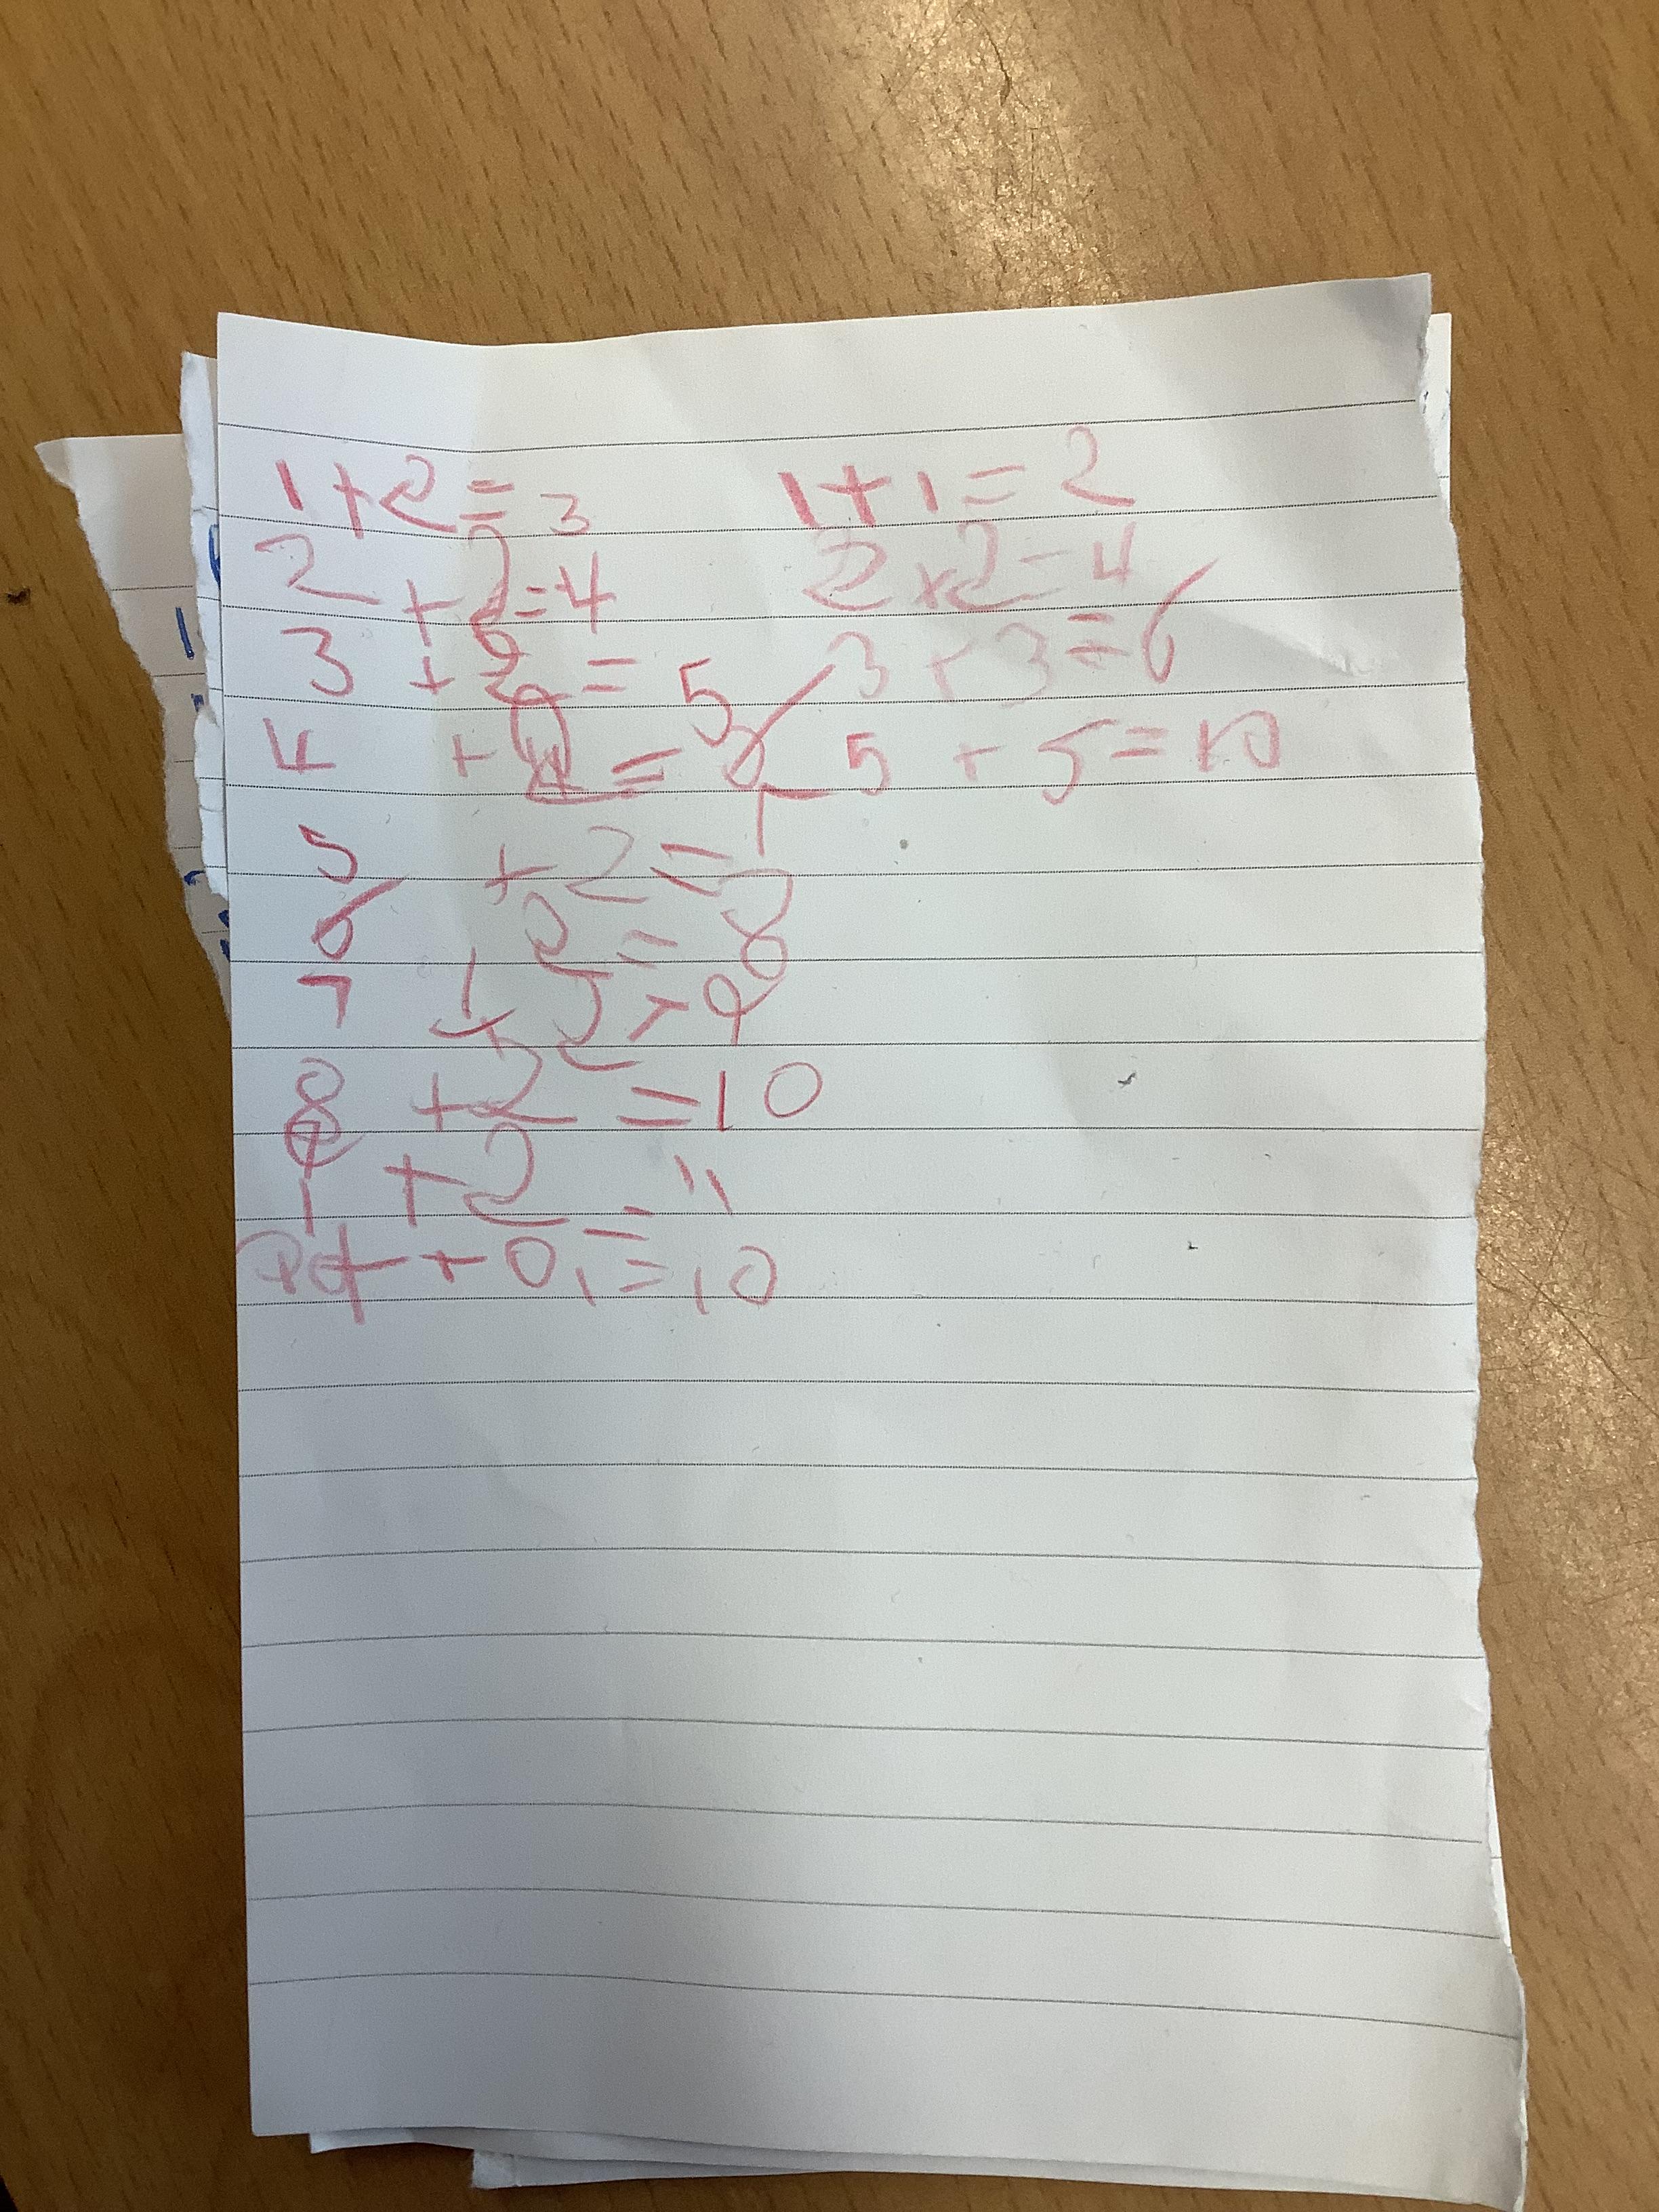 1+2=3
2+2=4
3+2=5
4+2=6
5+2=7
6 2=8
7+2=9
8+2=10
9+2=11
+0=10
1+1=2
2+2=4
3+3=6
5+5=10